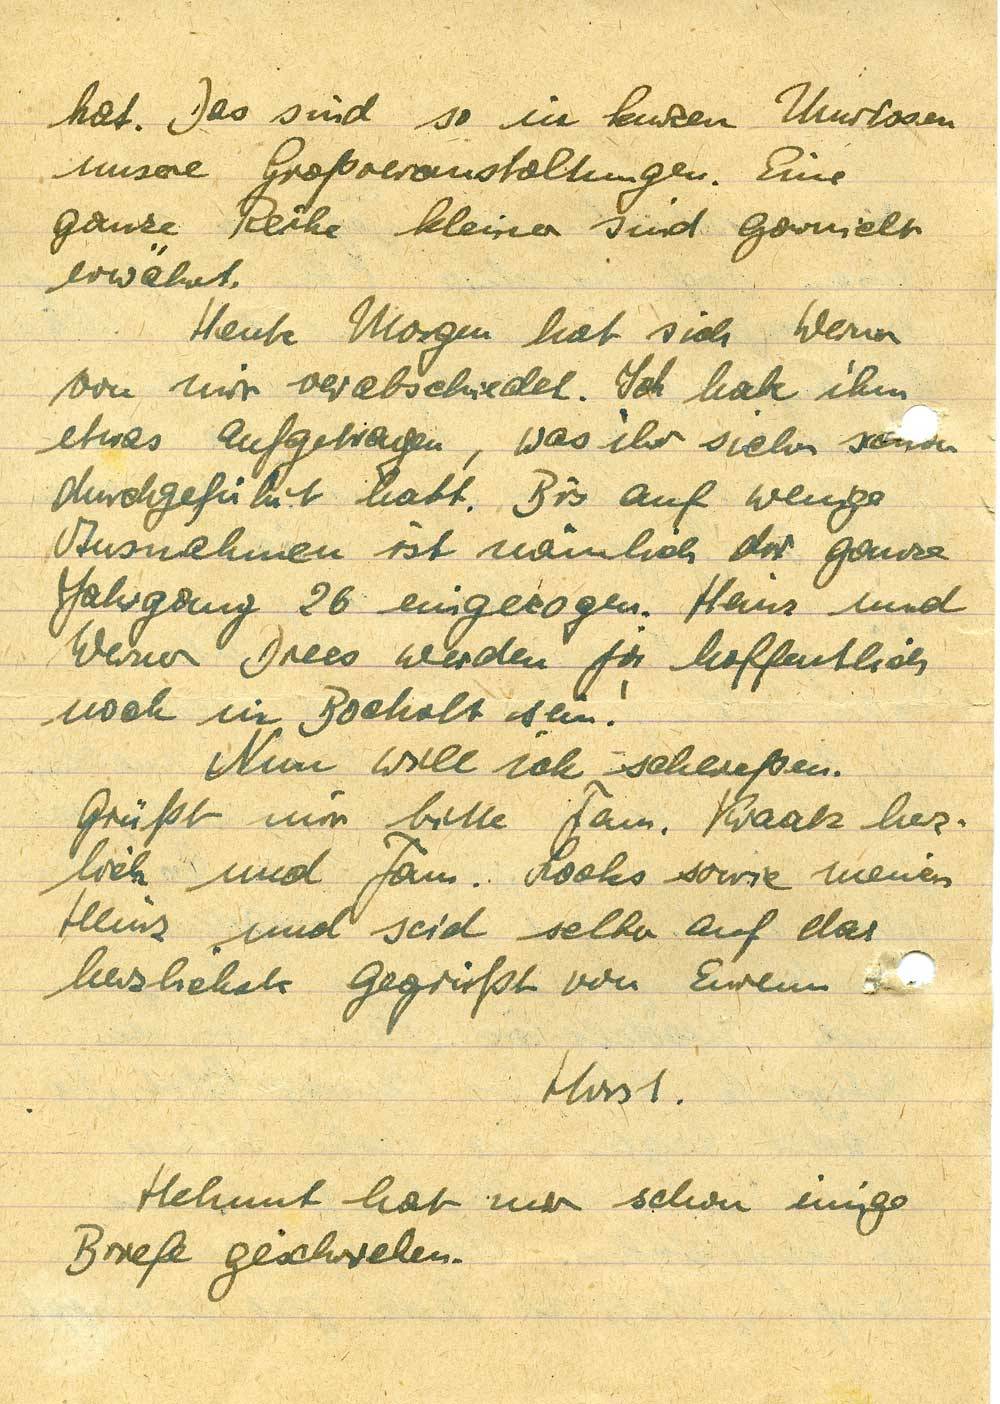 hat. Das sind so in kurzen Umrissen
unsere Großveranstaltungen. Eine
ganze Reihe kleiner sind garnicht
erwähnt.
Heute Morgen hat sich Werner
von mir verabschiedet. Ich habe ihm
etwas aufgetragen, was ihr sicher schon
durchgeführt habt. Bis auf wenige
Ausnahmen ist nämlich der ganze
Jahrgang 26 eingezogen. Heinz und
Werner Drees werden ja hoffentlich
noch in Bocholt sein!
Nun will ich schließen.
Grüßt mir bitte Fam. Kraatz herz-
lich und Fam. Looks sowie meinen
Heinz und seid selber auf das
herzlichste gegrüßt von Eurem
Horst.
Helmut hat mir schon einige
Briefe geschrieben.